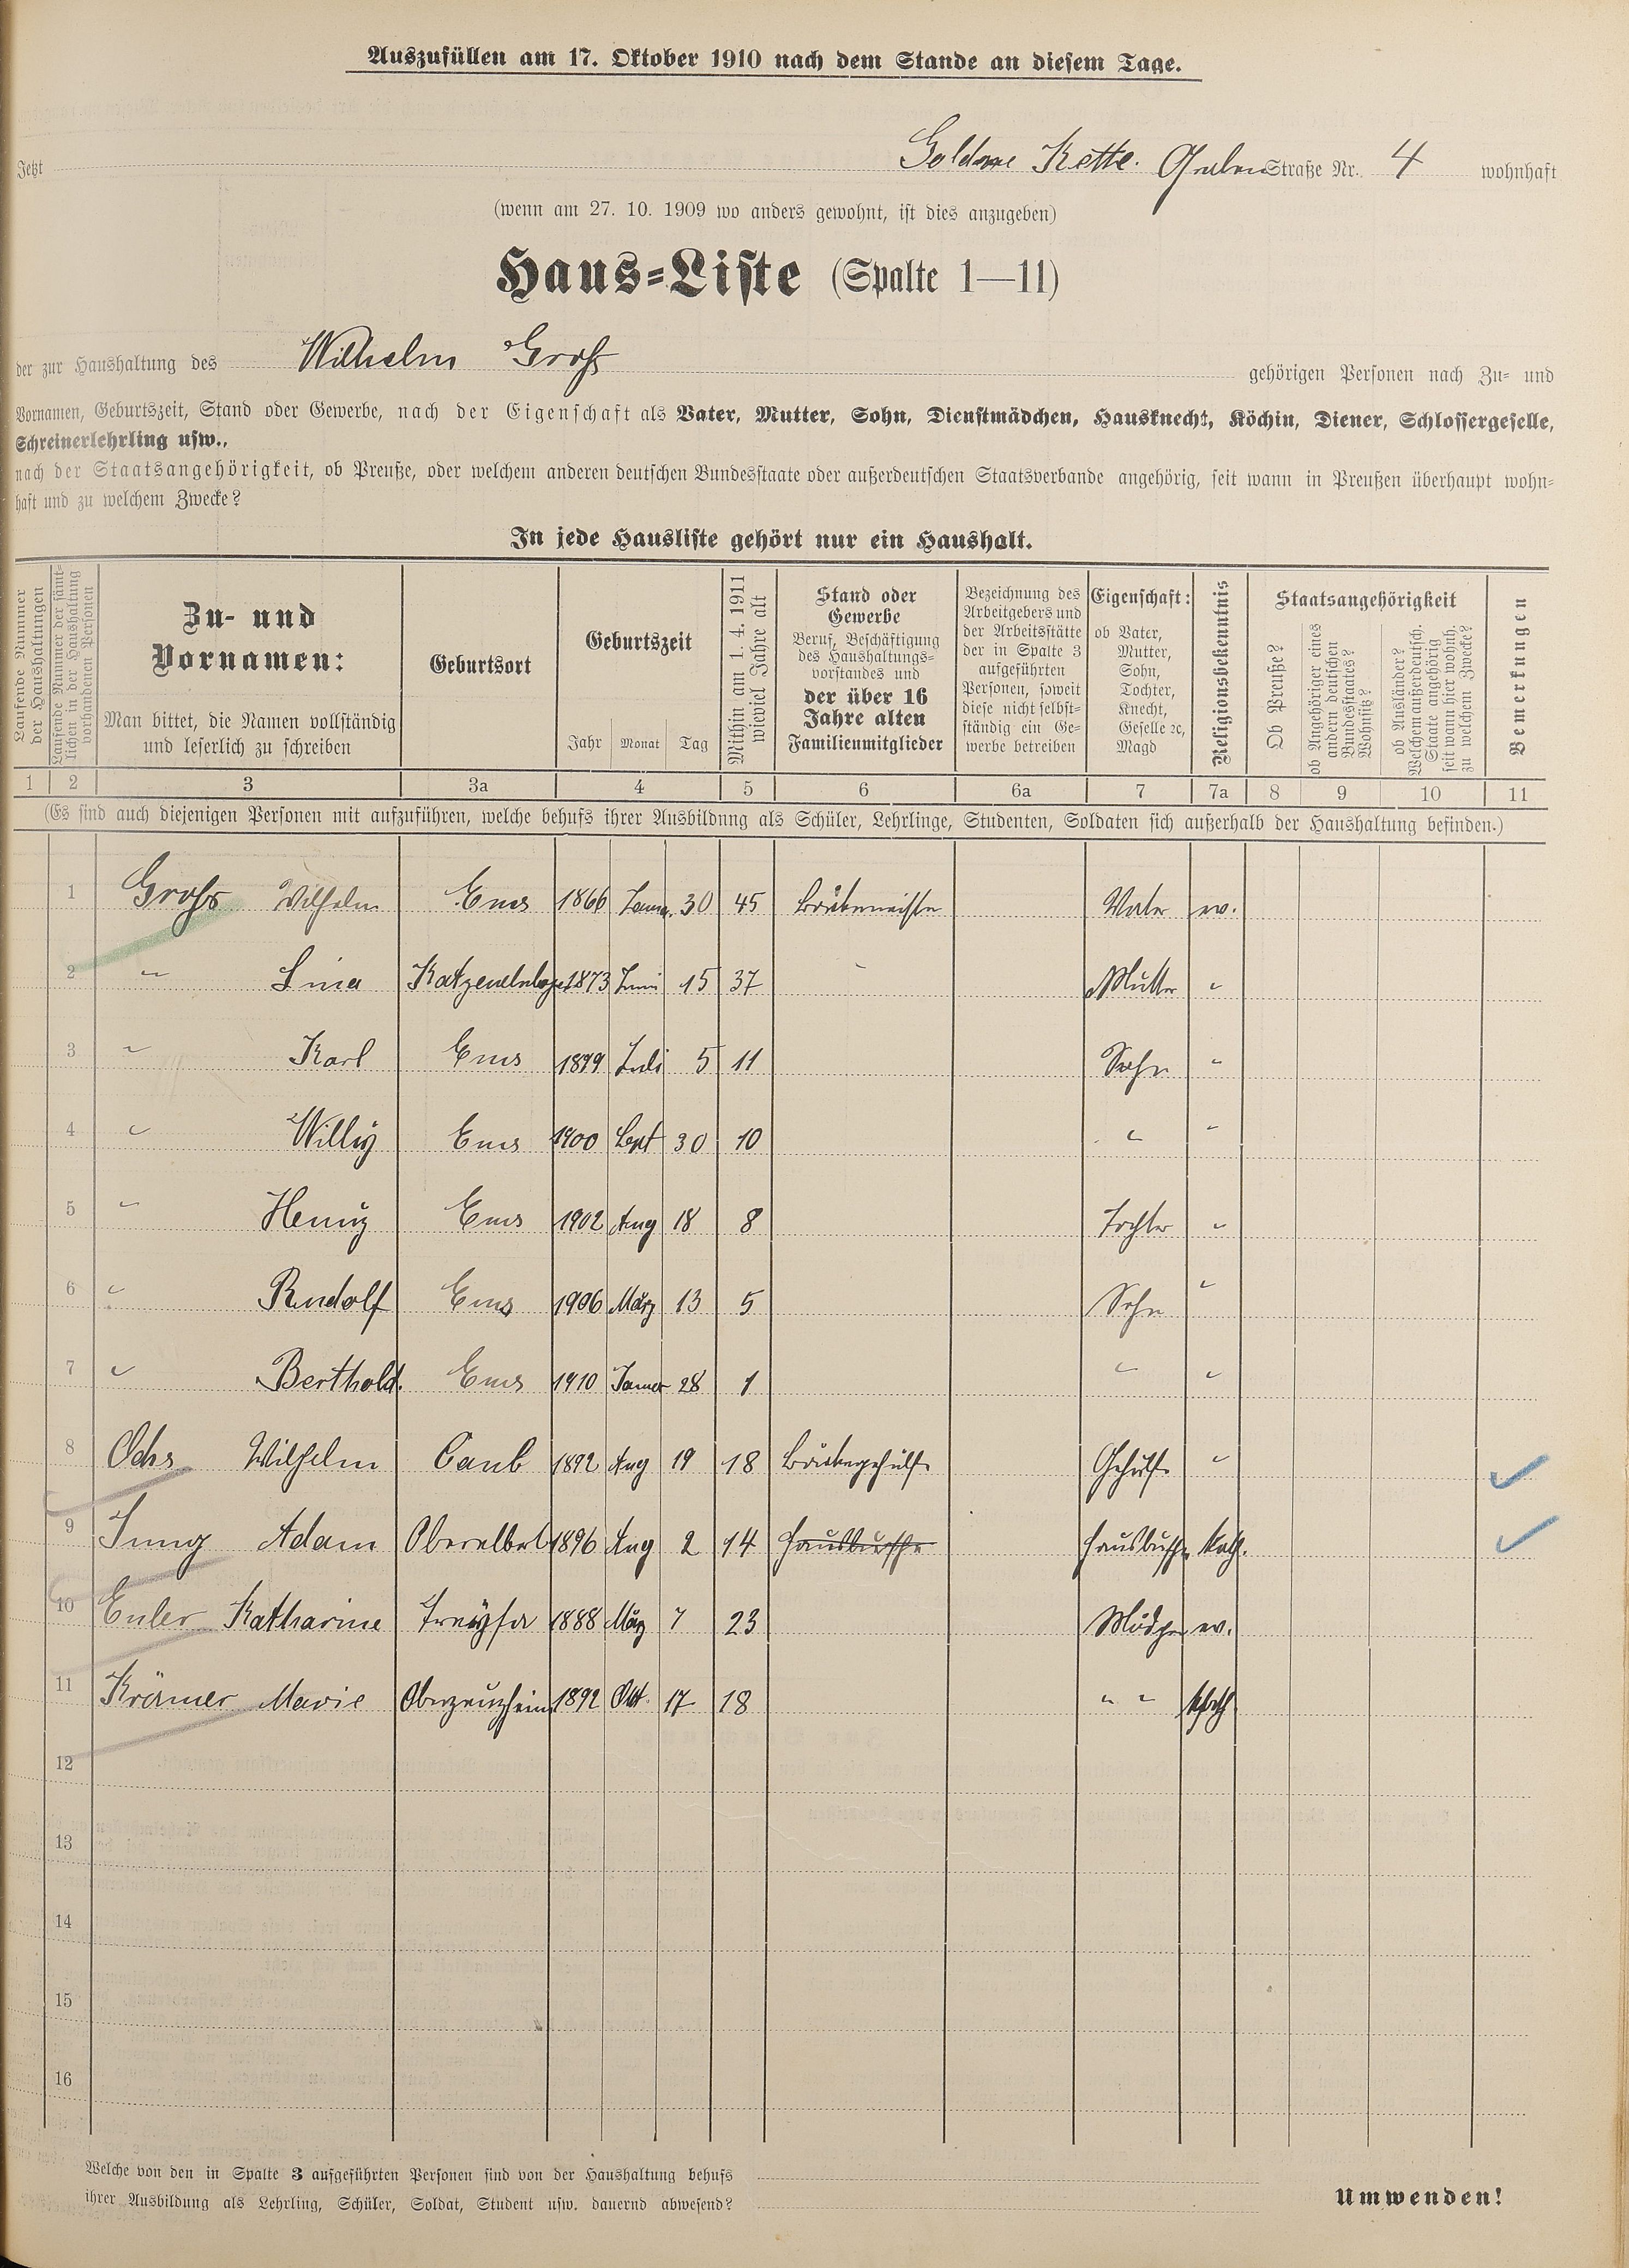 Auszufüllen am 17. Oktober 1910 nach dem Stande an diesem Tage.
Jetzt Goldene Kette. Graben Straße Nr. 4 wohnhaft
(wenn am 27. 10. 1909 wo anders gewohnt, ist dies anzugeben)
Haus=Liste (Spalte 1—11)
der zur Haushaltung des Wilhelm Groß gehörigen Personen nach Zu= und
Vornamen, Geburtszeit, Stand oder Gewerbe, nach der Eigenschaft als Vater, Mutter, Sohn, Dienstmädchen, Hausknecht, Köchin, Diener, Schlossergeselle,
Schreinerlehrling usw.,
nach der Staatsangehörigkeit, ob Preuße, oder welchem anderen deutschen Bundesstaate oder außerdeutschen Staatsverbande angehörig, seit wann in Preußen überhaupt wohn=
haft und zu welchem Zwecke?
In jede Hausliste gehört nur ein Haushalt.
Laufende Nummer
der Haushaltungen
Laufende Nummer der sämt=
lichen in der Haushaltung
vorhandenen Personen
Zu- und
Vornamen:
Man bittet, die Namen vollständig
und leserlich zu schreiben
Geburtsort
Geburtszeit
Jahr Monat Tag
Mithin am 1. 4. 1911
wieviel Jahre alt
Stand oder
Gewerbe
Beruf, Beschäftigung
des Haushaltungs=
vorstandes und
der über 16
Jahre alten
Familienmitglieder
Bezeichnung des
Arbeitgebers und
der Arbeitsstätte
der in Spalte 3
aufgeführten
Personen, soweit
diese nicht selbst=
ständig ein Ge=
werbe betreiben
Eigenschaft:
ob Vater,
Mutter,
Sohn,
Tochter,
Knecht,
Geselle ec,
Magd
Religionsbekenntnis
Staatsangehörigkeit
Ob Preuße?
ob Angehöriger eines
andern deutschen
Bundesstaates?
Wohnsitz?
ob Ausländer?
Welchem außerdeutsch.
Staate angehörig
seit wann hier wohnh.
zu welchem Zwecke?
Bemerkungen
1 2 3 3a 4 5 6 6a 7 7a 8 9 10 11
(Es sind auch diejenigen Personen mit aufzuführen, welche behufs ihrer Ausbildung als Schüler, Lehrlinge, Studenten, Soldaten sich außerhalb der Haushaltung befinden.)
1 Groß Wilhelm Ems 1866 30 45 Vater ev.
2 " Lina 1873 Juni 15 37 Mutter "
3 " Karl Ems 1899 Juli 5 11 Sohn "
4 " Willy Ems 1900 Sept 30 10 " "
5 " Henny Ems 1902 Aug 18 8 Tochter "
6 " Rudolf Ems 1906 März 13 5 Sohn "
7 " Berthold. Ems 1910 Januar 28 1 " "
8 Ochs Wilhelm Caub 1892 Aug 19 18 Gehülfe "
9 Jung Adam 1896 Aug 2 14 Hausbursche Hausbursche kath.
10 Euler Katharine Treysa 1888 März 7 23 Mädchen ev.
11 Krämer Marie Oberzeuzheim 1892 Okt. 17 18 " " kath
12
13
14
15
16
Welche von den in Spalte 3 aufgeführten Personen sind von der Haushaltung behufs
ihrer Ausbildung als Lehrling, Schüler, Soldat, Student usw. dauernd abwesend?
Umwenden!